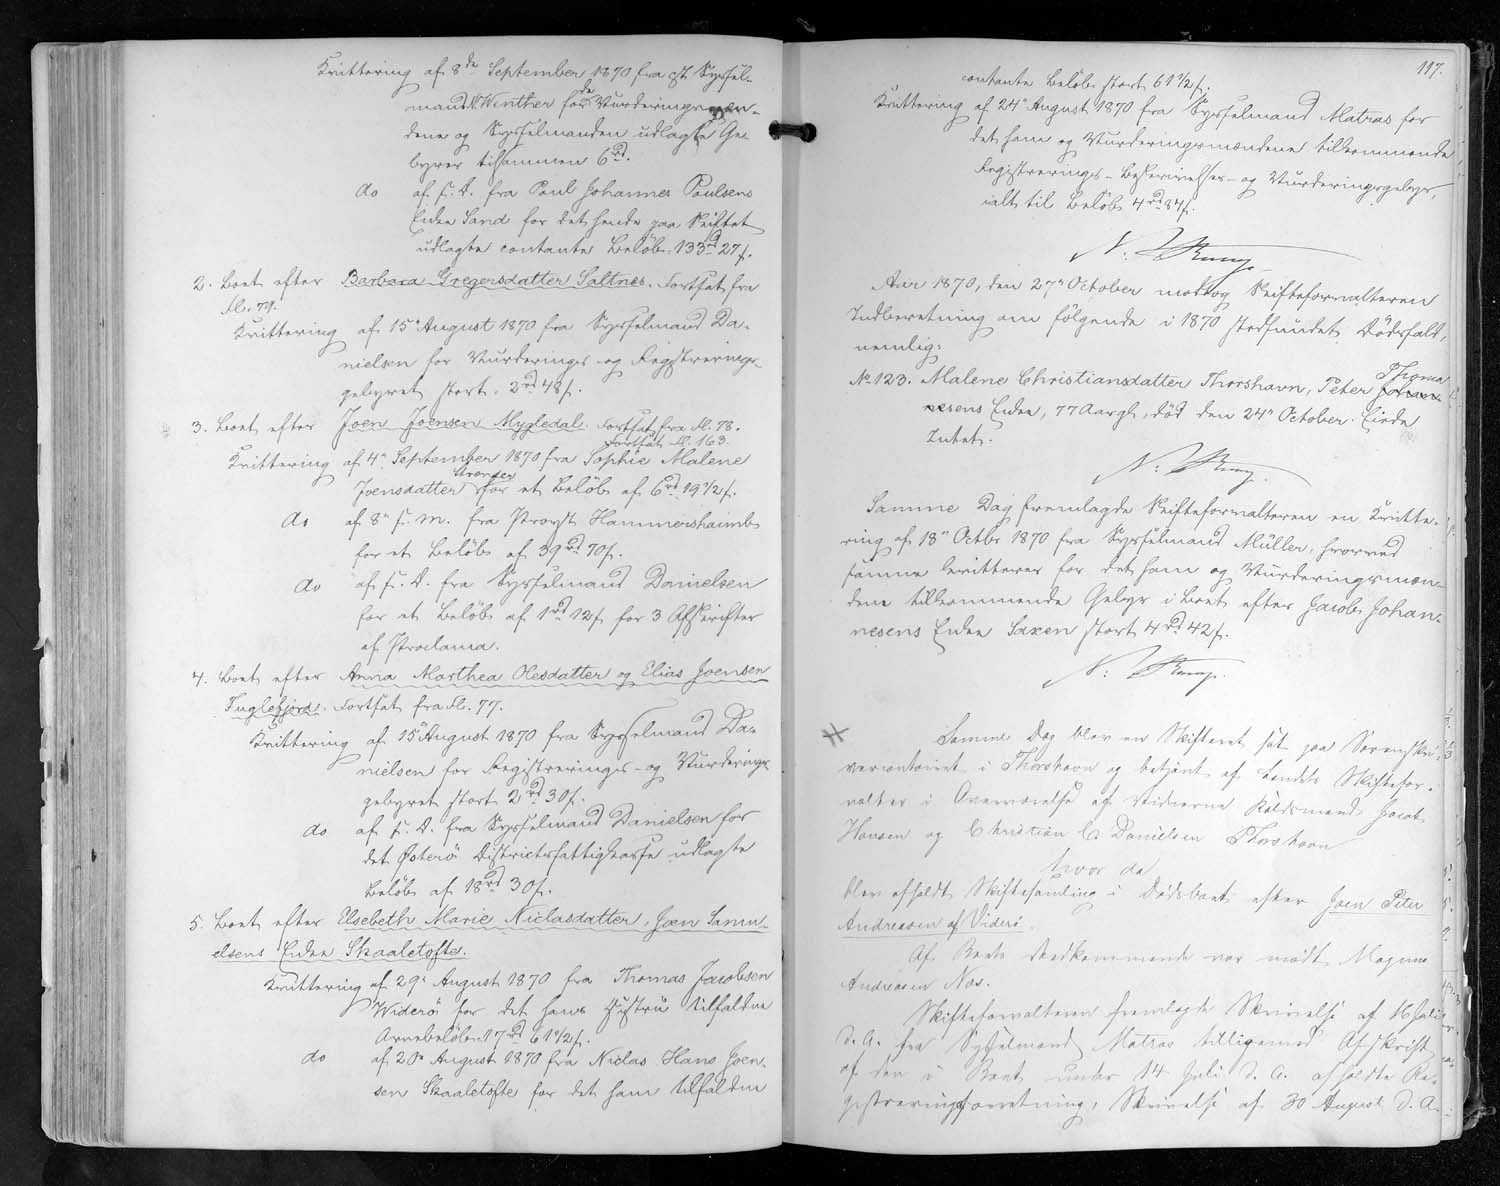 Kvittering af 8de September 1870 fra cst. Syssel-
mand N. Winther for de Vurderingsmæn-
dene og Sysselmanden udlagte Ge-
byrer tilsammen 6rd.
do af s. D. fra Poul Johannes Poulsens
Enke Sand for det hende paa Skiftet
udlagte contante Beløb 133rd 27s.
2. Boet efter Barbara Gregersdatter Saltnes. Fortsat fra
Fl. 79.
Kvittering af 15de August 1870 fra Sysselmand Da-
nielsen for Vurderings- og Registrerings-
gebyret stort 2rd 48s.
3. Boet efter Joen Joensen Mygledal. Fortsat fra Fl. 78.
Fortsat Fl. 163.
Kvittering af 4de September 1870 fra Sophie Malene
Joensdatter Strender for et Beløb af 6rd 19 1/2 s.
do af 8de s. M. fra Provst Hammershaimb
for et Beløb af 39rd 70s.
do af s. D. fra Sysselmand Danielsen
for et Beløb af 1rd 12s for 3 Afskrifter
af Proclama.
4. Boet efter Anna Marthea Olesdatter og Elias Joensen
Fuglefjord. Fortsat fra Fl. 77.
Kvittering af 15de August 1870 fra Sysselmand Da-
nielsen for Registrerings- og Vurderings
gebyret stort 2rd 30s.
do af s. D. fra Sysselmand Danielsen for
det Østerø Districtsfattigkasse udlagte
Beløb af 18rd 30s.
5. Boet efter Elsebeth Marie Niclasdatter, Joen Samu-
elsens Enke Skaaletofte.
Kvittering af 29de August 1870 fra Thomas Jacobsen
Widerö for det hans Hustru tilfaldne
Arvebeløb 17rd 61 1/2 s.
do af 20de August 1870 fra Niclas Hans Joen-
sen Skaaletofte for det ham tilfaldne
117.
contante Beløb stort 61 1/2 s.
Kvittering af 24de August 1870 fra Sysselmand Matras for
det ham og Vurderingsmændene tilkommende
Registrerings- Beskrivelses- og Vurderingsgebyr,
ialt til Beløb 4rd 34s.
Aar 1870, den 27de October modtog Skifteforvalteren
Indberetning om følgende i 1870 stedfundet Dødsfald,
nemlig:
No 123. Malene Christiansdatter Thorshavn, Peter Thoma
nesens Enke, 77 Aar gl., død den 24de October. Eiede
Intet.
Samme Dag fremlagde Skifteforvalteren en Kvitte-
ring af 18de Octbr 1870 fra Sysselmand Müller, hvorved
samme kvitterer for det ham og Vurderingsmæn-
dene tilkommende Gebyr i Boet efter Jacob Johan-
nesens Enke Saxen stort 4rd 42s.
Samme Dag blev en Skifteret sat paa Sorenskri-
vercontoiret i Thorshavn og betjent af Landets Skiftefor-
valter i Overværelse af Vidnerne Jacob
Hansen og Christian C. Danielsen Thorshavn
hvor da
blev afholdt Skiftesamling i Dødsboet efter Joen Peter
Andreasen af Viderø.
Af Boets Vedkommende var mødt Magnus
Andreasen Nos.
Skifteforvalteren fremlagte Skrivelse af 16 Juli
d. A. fra Sysselmand Matras tilligemed Afskrift
af den i Boet under 14 Juli d. A. afholdte Re-
gistreringsforretning, Skrivelse af 30 August d. A.